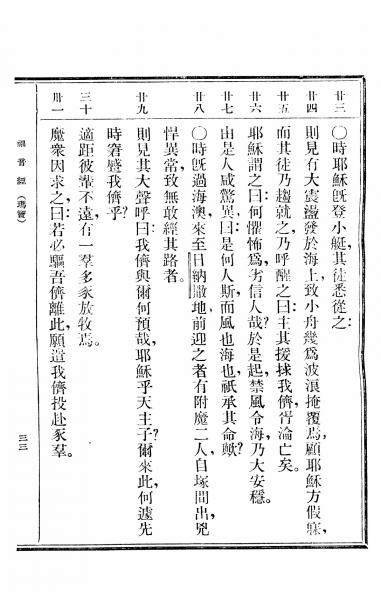 廿三 ○時耶穌旣登小艇,其徒悉從之:
廿四 則見有大震盪發於海上,致小舟幾爲波浪掩覆焉,顧耶穌方假寐,
廿五 而其徒乃趨就之,乃呼醒之曰:主其援捄我儕,胥淪亡矣。
廿六 耶穌謂之曰:何懼怖爲,劣信人哉?於是起,禁風令海,乃大安穩。
廿七 由是人咸驚異,曰:是何人斯,而風也海也,祇承其命歟?
廿八 ○時旣過海澳,來至日納撒地,前迎之者有附魔二人,自塚間出,兇
悍異常,致無敢經其路者。
廿九 則見其大聲呼曰:我儕與爾何預哉,耶穌乎天主子?爾來此,何遽先
時窘蹙我儕乎?
三十 適距彼輩不遠,有一羣多豕放牧焉。
卅一 魔衆因求之曰:若必驅吾儕離此,願遣我儕投赴豕羣。
福音經(瑪竇) 三三